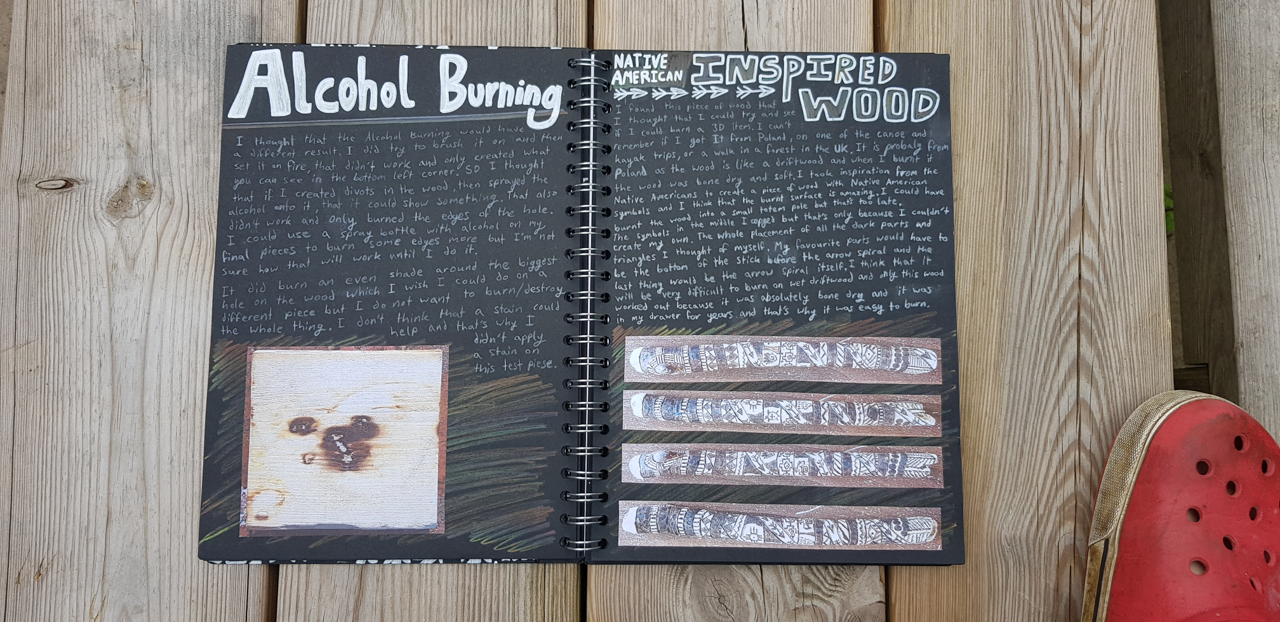 Alcohol Burning
I thought that the Alcohol Burning would have
a different result. I did try to brush it on and then
set it on fire, that didn't work and only created what
you can see in the bottom left corner. SO I thought
that if I created divots in the wood, then sprayed the
alcohol onto it that it could show something. That also
didn't work and only burned the edges of the hole.
I could use a spray bottle with alcohol on my
final pieces to burn some edges more but I'm not
sure how that will work until I do it.
It did burn an even shade around the biggest
hole on the wood which I wish I could do on a
different piece but I do not want to burn/destroy
the whole thing. I don't think that a stain could
help and that's why I
didn't apply
a stain on
this test piese.
NATIVE
AMERICAN
INSPIRED
WOOD
I found this piece of wood that
I thought that I could try and see
if I could burn a 3D item. I can't
remember if I got It from Poland, on one of the canoe and
kayak trips, or a walk in a forest in the UK. It is probaly from
Poland as the wood is like a driftwood and when I burnt it
the wood was bone dry and soft. I took inspiration from the
Native Americans to create a piece of wood with Native American
symbols and I think that the burnt surface is amazing. I could have
burnt the wood into a small totem pole but that's too late.
The symbols in the middle I copped but that's only because I couldn't
create my own. The whole placement of all the dark parts and
triangles I thought of myself. My favourite parts would have to
be the bottom of the stick before the arrow spiral and the
last thing would be the arrow spiral itself. I think that it
will be very difficult to burn on wet driftwood and only this wood
worked out because it was absolutely bone dry and it was
in my drawer for years and that's why it was easy to burn.